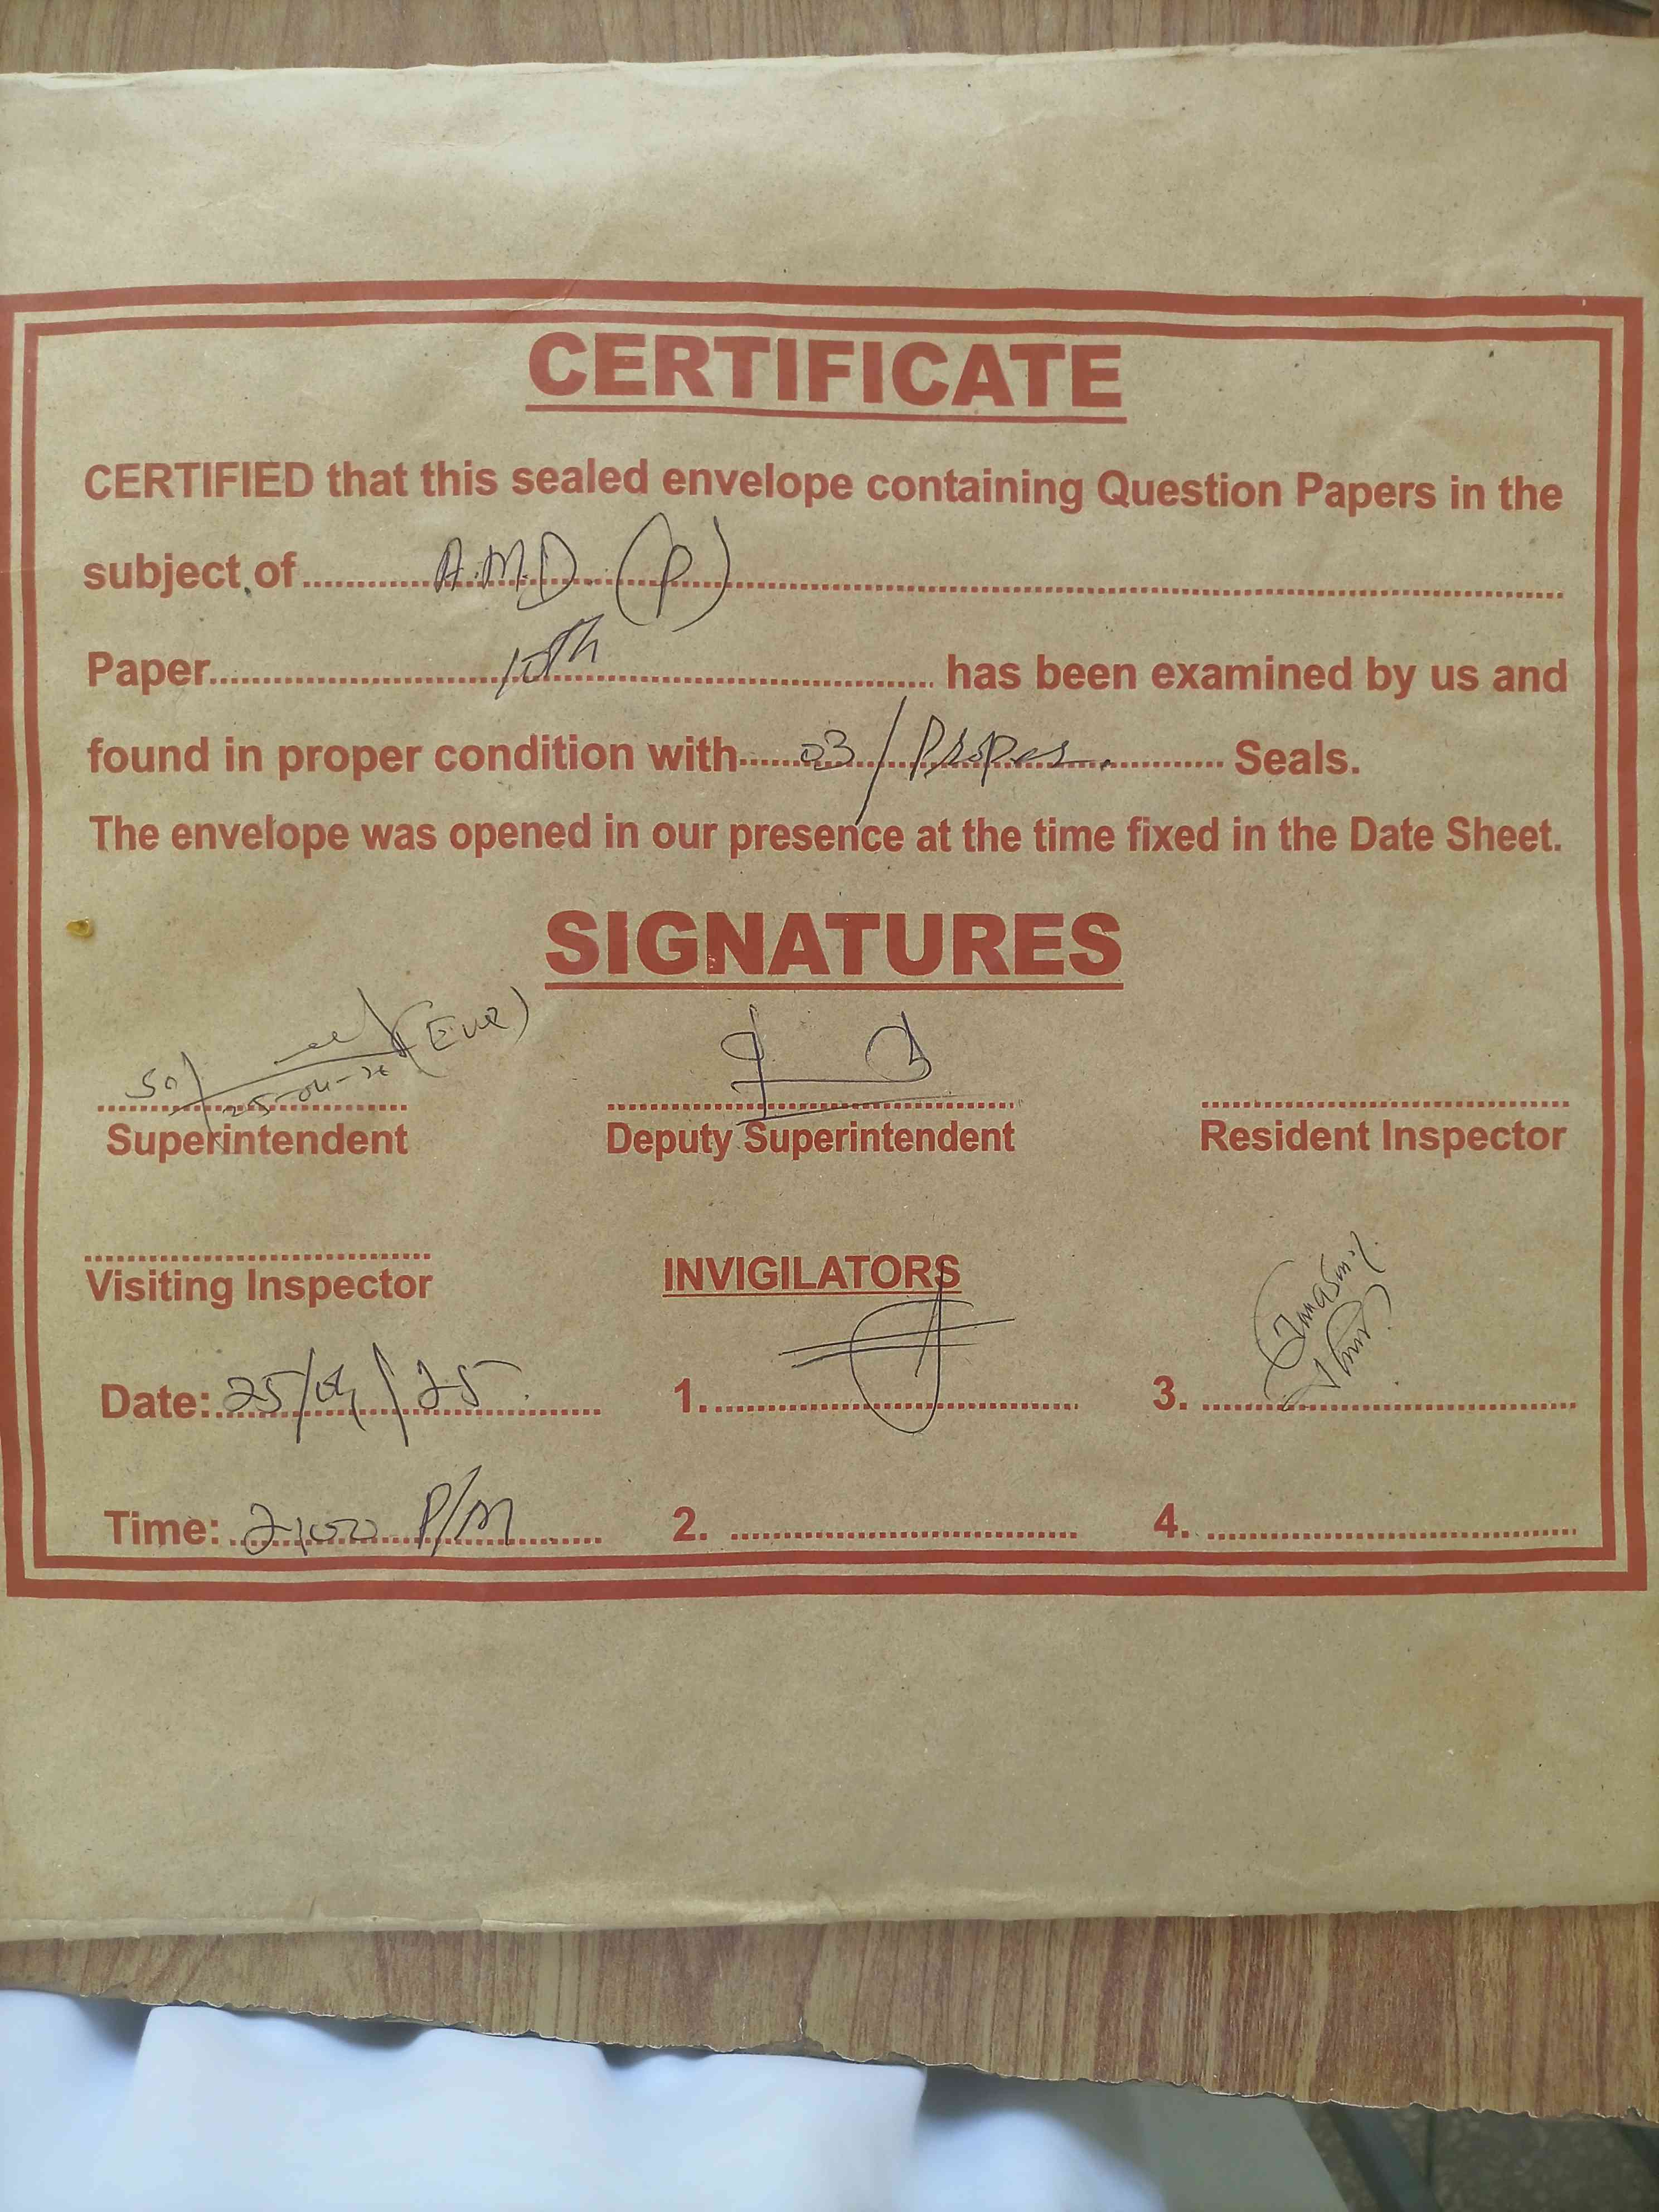 CERTIFICATE
CERTIFIED that this sealed envelope containing Question Papers in the
subject of A.M.D. (P)
Paper 10th has been examined by us and
found in proper condition with 03 / Proper. Seals.
The envelope was opened in our presence at the time fixed in the Date Sheet.
SIGNATURES
(Eve)
Superintendent Deputy Superintendent Resident Inspector
Visiting Inspector INVIGILATORS
Date: 25/04/25 1. 3.
Time: P/M 2. 4.